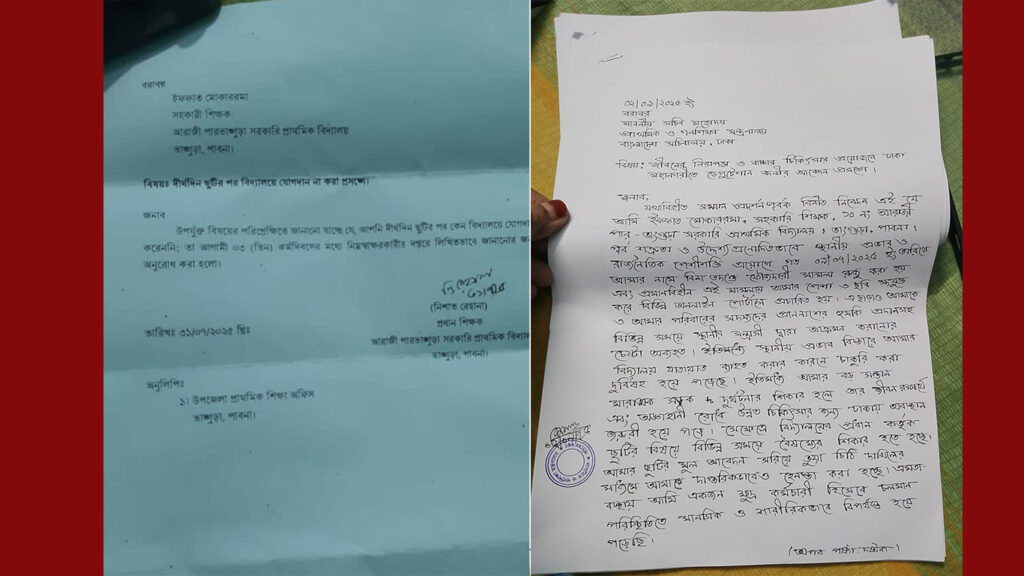 বরাবর
ইফফাত মোকাররমা
সহকারী শিক্ষক
আরাজী পারভাঙ্গুড়া সরকারি প্রাথমিক বিদ্যালয়
ভাঙ্গুড়া, পাবনা।
বিষয়ঃ দীর্ঘদিন ছুটির পর বিদ্যালয়ে যোগদান না করা প্রসঙ্গে।
জনাব
উপর্যুক্ত বিষয়ের পরিপ্রেক্ষিতে জানানো যাচ্ছে যে, আপনি দীর্ঘদিন ছুটির পর কেন বিদ্যালয়ে যোগদা
করেননি; তা আগামী ০৩ (তিন) কর্মদিবসের মধ্যে নিম্নস্বাক্ষরকারীর দপ্তরে লিখিতভাবে জানানোর জন
অনুরোধ করা হলো।
(নিশাত রেহানা)
প্রধান শিক্ষক
আরাজী পারভাঙ্গুড়া সরকারি প্রাথমিক বিদ্যাল
ভাঙ্গুড়া, পাবনা।
তারিখঃ ৩১/০৭/২০২৫ খ্রিঃ
অনুলিপিঃ
১। উপজেলা প্রাথমিক শিক্ষা অফিস
ভাঙ্গুড়া, পাবনা।
০২/০৯/২০২৫ ইং
বরাবর
মাননীয় সচিব মহোদয়
প্রাথমিক ও গনশিক্ষা মন্ত্রণালয়
বাংলাদেশ সচিবালয়, ঢাকা
বিষয়: জীবনের নিরাপত্তা ও বাচ্চার চিকিৎসার প্রয়োজনে ঢাকা
মহানগরীতে ডেপুটেশান বদলীর আবেদন প্রসঙ্গে।
জনাব,
যথাবিহীত সম্মান প্রদর্শনপূর্বক বিনীত নিবেদন এই যে
আমি ইফফাত মোকাররমা, সহকারি শিক্ষক, ১০ নং আরাজী
পার-ভাংগুড়া সরকারি প্রাথমিক বিদ্যালয়, ভাংগুড়া, পাবনা।
পূর্ব শত্রুতা ও উদ্দেশ্যপ্রনোদিতভাবে স্থানীয় প্রভাব ও
রাজনৈতিক পেশীশক্তি প্রয়োগে গত ০৯/০৭/২০২৫ ইং তারিখে
আমার নামে বিনা তদন্তে ফৌজদারী মামলা রুজু করা হয়
এবং প্রমানবিহীন এই মামলায় আমার পেশা ও ছবি সংযুক্ত
করে বিভিন্ন অনলাইন পোর্টালে প্রচারিত হয়। এছাড়াও আমাকে
ও আমার পরিবারের সদস্যদের প্রাননাশের হুমকি প্রদানসহ
বিভিন্ন সময়ে স্থানীয় সন্ত্রাসী দ্বারা আক্রমন করানোর
চেষ্টা অব্যহত। ইতিমধ্যে স্থানীয় প্রভাব বিস্তারে আমার
বিদ্যালয় যাতায়াত ব্যাহত করার কারনে চাকুরি করা
দুর্বিষহ হয়ে পড়েছে। ইতিমধ্যে আমার বড় সন্তান
মারাত্মক সড়ক দুর্ঘটনার শিকার হলে তার জীবন রক্ষার্থে
এবং অঙ্গহানী রোধে উন্নত চিকিৎসার জন্য ঢাকায় অবস্থান
জরুরী হয়ে পড়ে। সেক্ষেত্রে বিদ্যালয়ের প্রধান কর্তৃক
ছুটির বিষয়ে বিভিন্ন সময়ে বৈষম্যের শিকার হতে হচ্ছে।
আমার ছুটির মূল আবেদন সরিয়ে ভুয়া চিঠি দাখিলের
মাধ্যমে আমাকে দাপ্তরিকভাবেও হেনস্থা করা হচ্ছে। এমতা-
বস্থায় আমি একজন ক্ষুদ্র কর্মচারী হিসেবে চলমান
পরিস্থিতিতে মানসিক ও শারীরিকভাবে বিপর্যস্ত হয়ে
পড়েছি।
(অপর পৃষ্ঠা দ্রষ্টব্য)